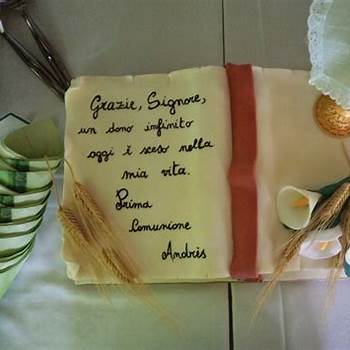 Grazie, Signore,
un dono infinito
oggi è sceso nella
mia vita.
Prima
Comunione
Andrès